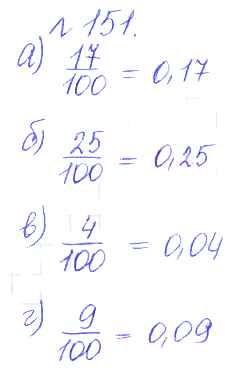 № 151.
а) 17/100 = 0,17
б) 25/100 = 0,25
в) 4/100 = 0,04
г) 9/100 = 0,09